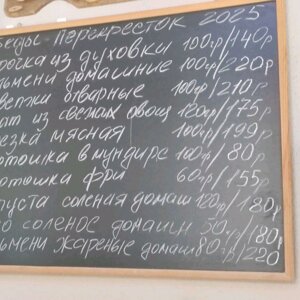 беды Перекресток 2025
рочка из духовки 100гр/140р
льмени домашние 100гр/220р
еветки отварные 100гр/210р
ат из свежих овощ 120гр/175р
езка мясная 100гр/199р
ртошка в мундире 100гр/80р
ртошка фри 60гр/155р
пуста соленая домаш 120гр/180р
о соленое домашн 50гр/180р
льмени жареные домаш 80гр/220